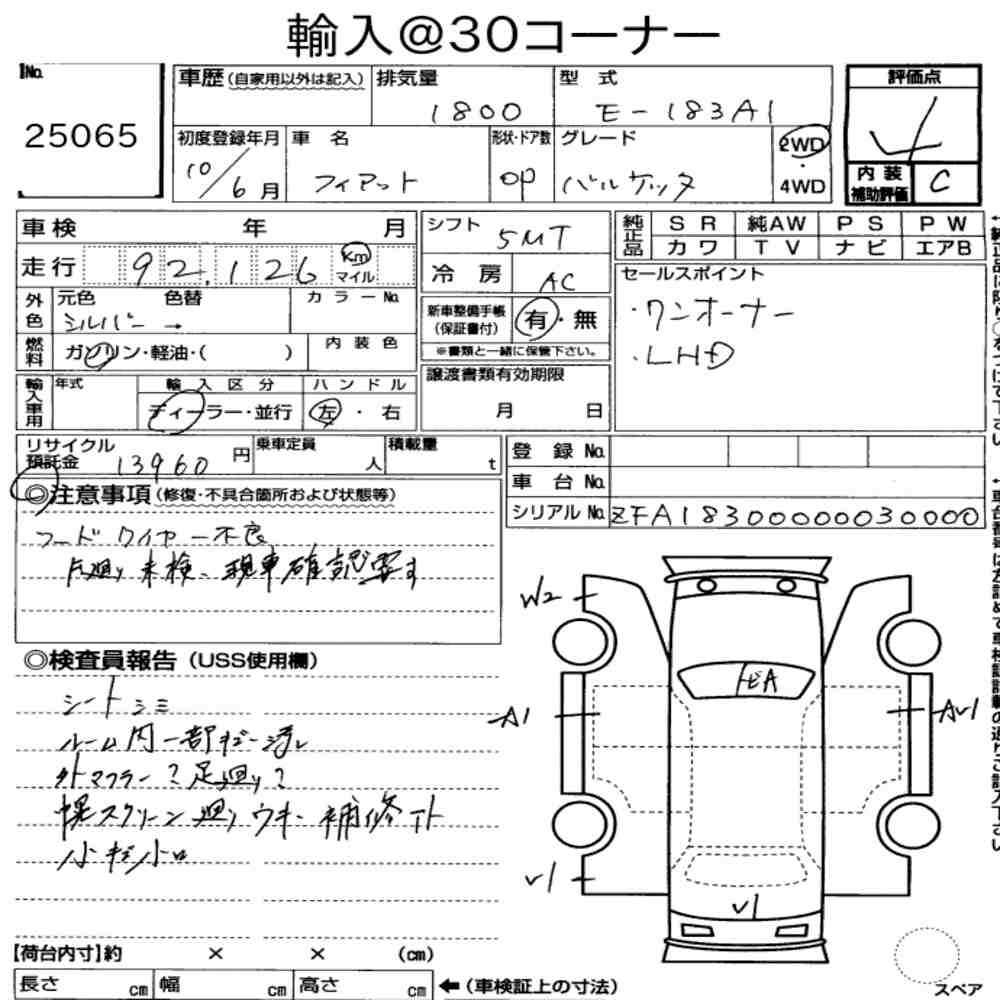 輸入@30コーナー
No.
25065
車歴(自家用以外は記入) 排気量 1800 型式 E-183A1
初度登録年月 10/6月 車名 フィアット 形状・ドア数 OP グレード バルケッタ 2WD・4WD
評価点 4
内装補助評価 C
車検 年 月
走行 92,126 km マイル
外色 元色 シルバー → 色替 カラーNo.
燃料 ガソリン・軽油・( ) 内装色
輸入車用 年式 輸入区分 ディーラー・並行 ハンドル 左・右
シフト 5MT
冷房 AC
新車整備手帳(保証書付) 有・無
※書類と一緒に保管下さい。
譲渡書類有効期限
月 日
純正品 SR 純AW PS PW
カワ TV ナビ エアB
セールスポイント
・ワンオーナー
・LHD
リサイクル預託金 13960円 乗車定員 人 積載量 t
登録No.
車台No.
シリアルNo. ZFA18300000030000
◎注意事項(修復・不具合箇所および状態等)
フードワイヤー不良
足廻り未検、現車確認要す
◎検査員報告(USS使用欄)
シートシミ
ルーム内一部ギー消し
外マフラー?足廻り?
幌スクリーン廻りウキ、補修下ト
小キズ小凹
W2
A1
AU1
U1
U1
【荷台内寸】約 × × (cm)
長さ cm 幅 cm 高さ cm ←(車検証上の寸法)
スペア